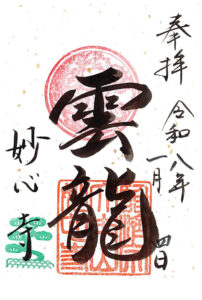 奉拝 令和八年
一月四日
雲龍
妙心寺